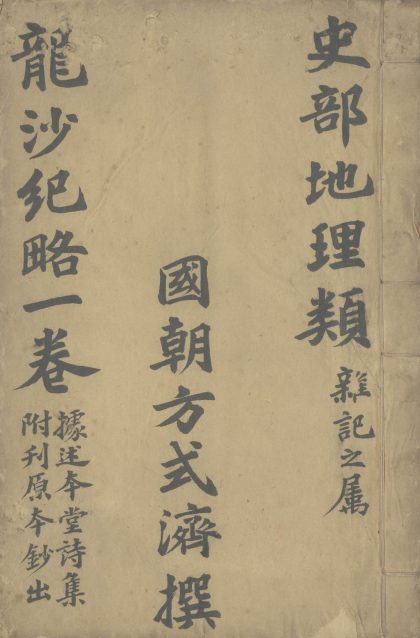 史部地理類
雜記之属
國朝方式濟撰
龍沙紀略一卷
據述夲堂詩集
附刊原夲鈔出